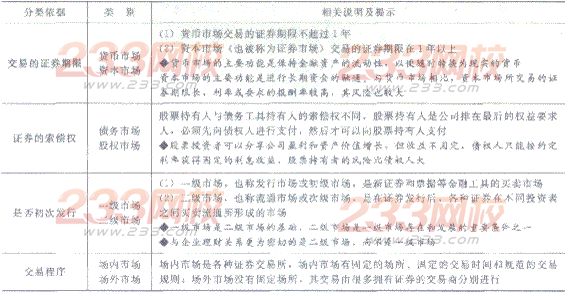 分类依据 类 别 相关说明及提示
交易的证券期限
货币市场
资本市场
(1) 货币市场交易的证券期限不超过1年
(2) 资本市场(也被称为证券市场)交易的证券期限在1年以上
◆货币市场的主要功能是保持金融资产的流动性,以便随时转换为现实的货币
资本市场的主要功能是进行长期资金的融通,与货币市场相比,资本市场所交易的证
券期限长,利率或要求的报酬率较高,其风险也较大
证券的索偿权
债务市场
股权市场
股票持有人与债务工具持有人的索偿权不同,股票持有人是公司排在最后的权益要求
人,必须先向债权人进行支付,然后才可以向股票持有人支付
◆股票投资者可以分享公司盈利和资产价值增长,但收益不固定,债权人只能按约定
利率获得固定的利息收益,股票持有者的风险比债权人大
是否初次发行
一级市场
二级市场
(1) 一级市场,也称发行市场或初级市场,是新证券和票据等金融工具的买卖市场
(2) 二级市场,也称流通市场或次级市场,是在证券发行后,各种证券在不同投资者
之间买卖流通所形成的市场
◆一级市场是二级市场的基础,二级市场是一级市场存在和发展的重要条件之一
◆与企业理财关系更为密切的是二级市场,而不是一级市场
交易程序
场内市场
场外市场
场内市场是各种证券交易所,场内市场有固定的场所、固定的交易时间和规范的交易
规则;场外市场没有固定场所,其交易由很多拥有证券的交易商分别进行
233网校
233网校
233网校